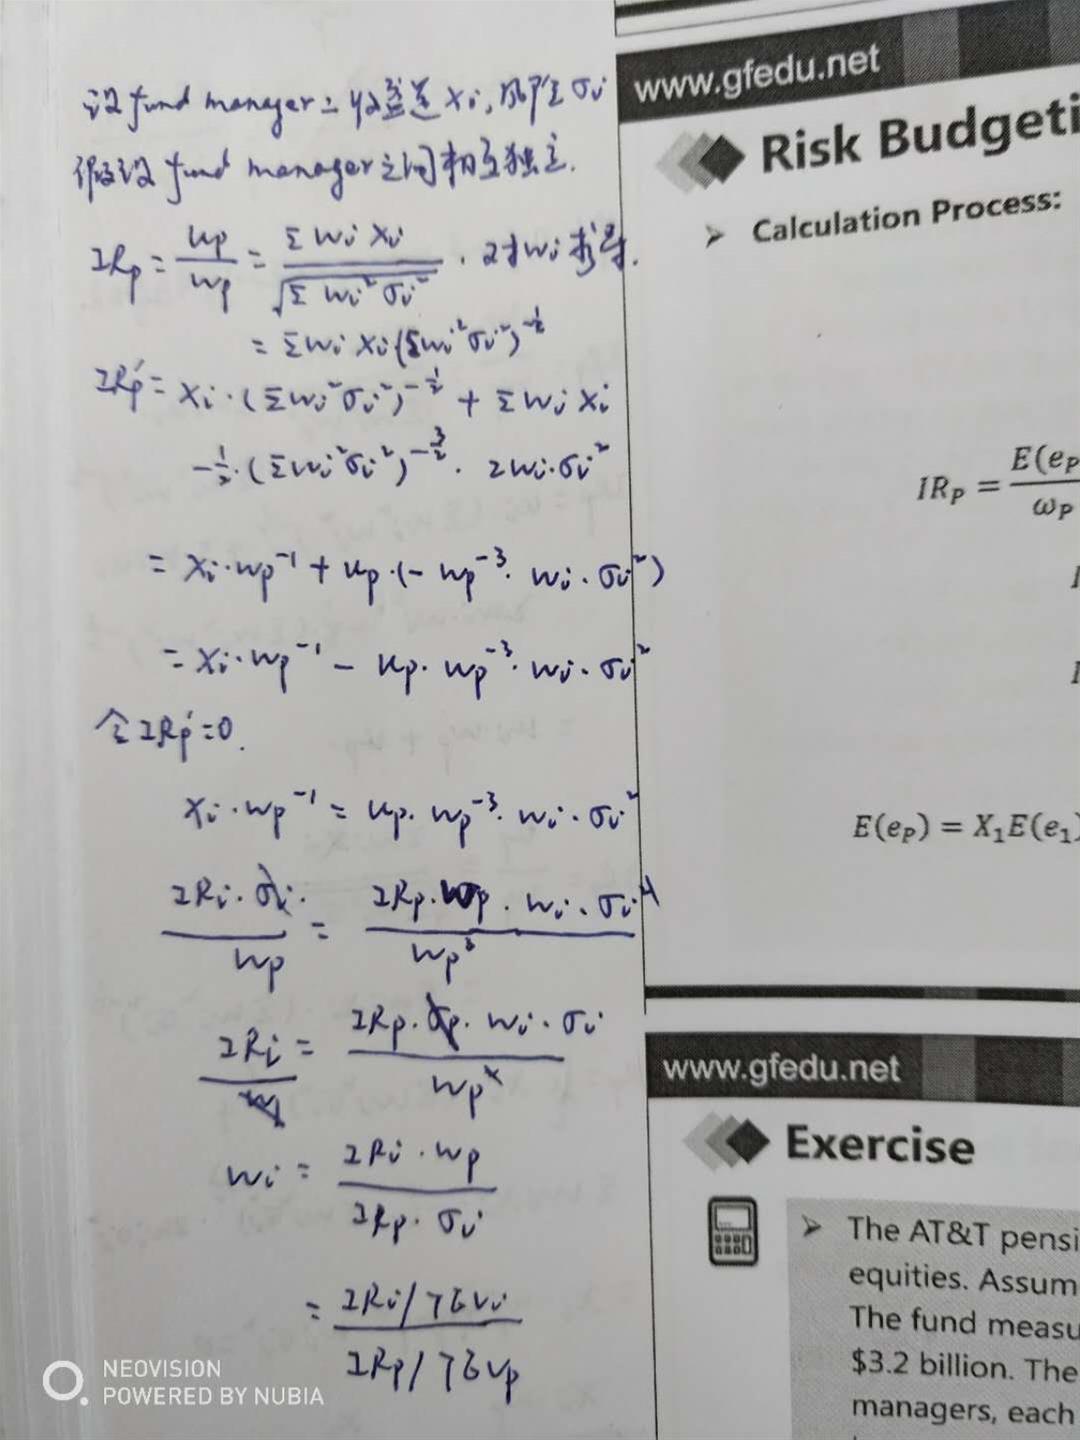 设fund manager 二 收益差 xi, 风险 σi
假设 fund manager 之间相互独立.
IRp = up/wp = Σ wi xi / √Σ wi² σi² . 对wi求导.
= Σwi xi (Σwi²σi²)^-½
IRp' = xi · (Σwi²σi²)^-½ + Σwi xi
-½ · (Σwi²σi²)^-3/2 · 2wi·σi²
= xi·wp⁻¹ + up·(- wp⁻³ · wi · σi²)
= xi·wp⁻¹ - up · wp⁻³ · wi · σi²
令 IRp' = 0.
xi · wp⁻¹ = up · wp⁻³ · wi · σi²
IRi · σi / wp = IRp · wp · wi · σi / wp³
IRi = IRp · σp · wi · σi / wp
wi = IRi · wp / IRp · σi
= IRi / TEVi / IRp / TEVp
NEOVISION
POWERED BY NUBIA
www.gfedu.net
Risk Budgeti
Calculation Process:
IR_P = E(e_P / ω_P
E(e_P) = X₁E(e₁)
www.gfedu.net
Exercise
The AT&T pensi
equities. Assum
The fund measu
$3.2 billion. The
managers, each